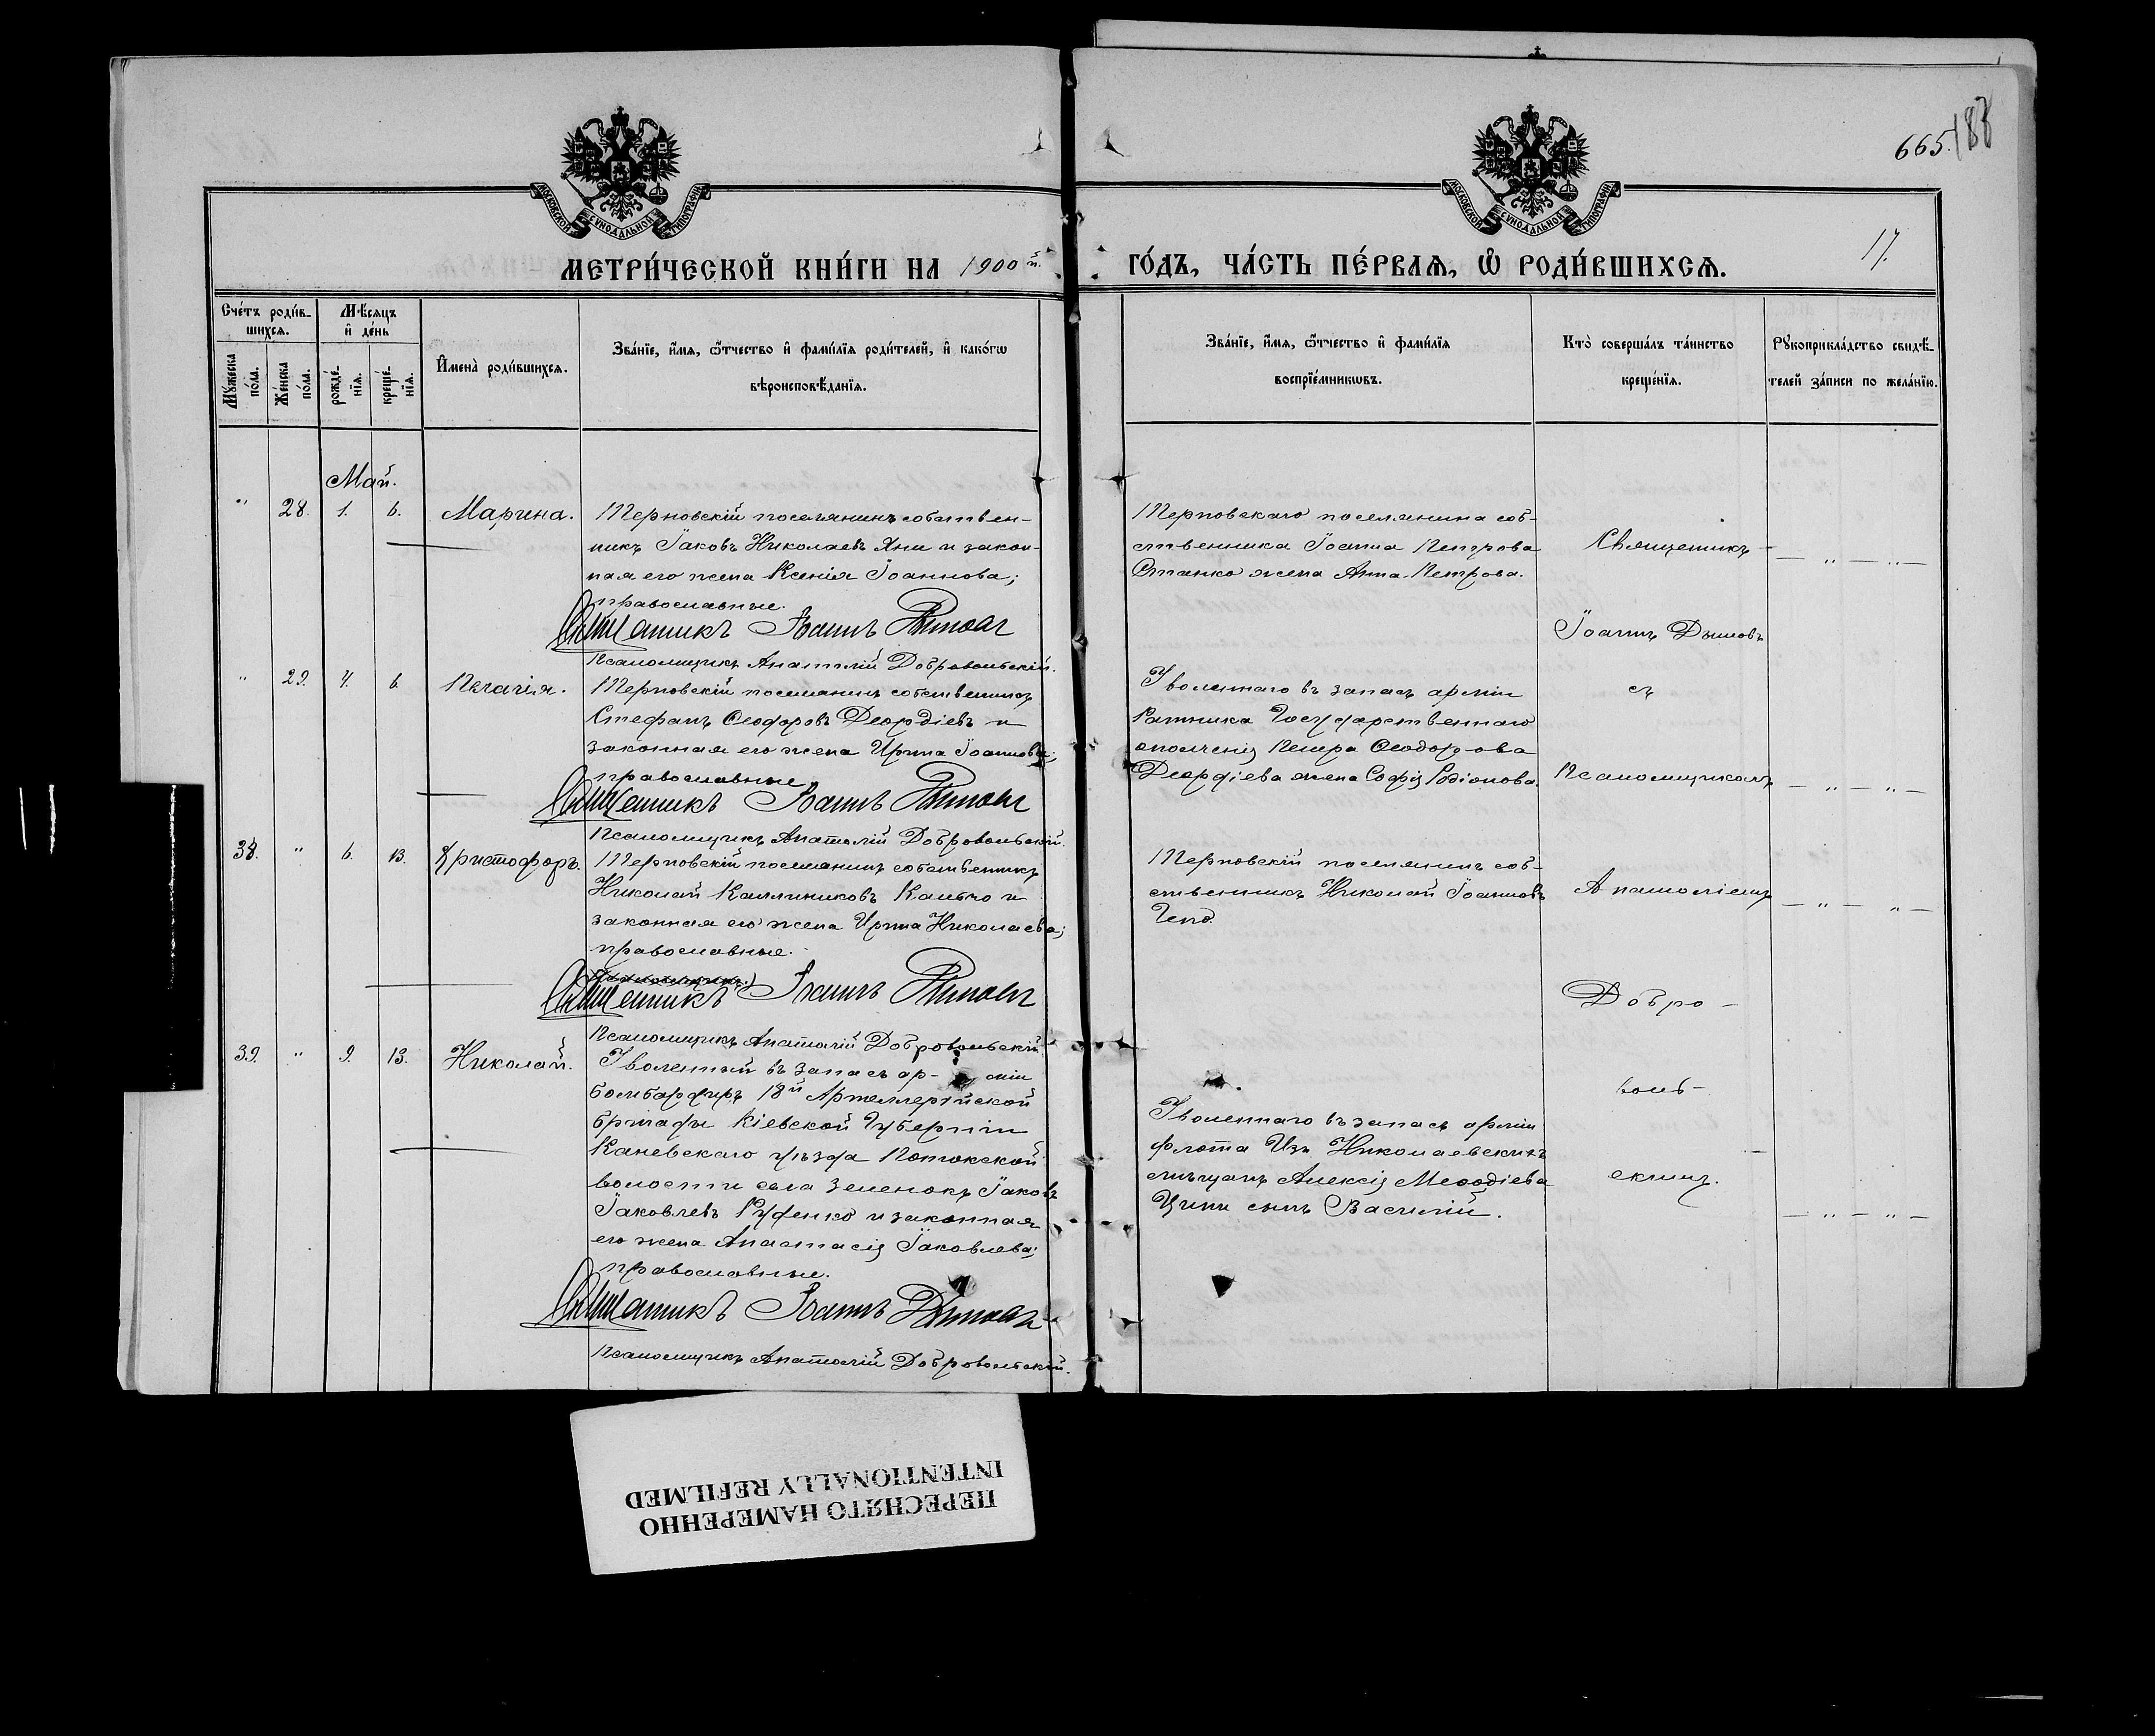 665.
188
МОСКОВСКОЙ СѴНОДАЛЬНОЙ ТИПОГРАФІИ
МОСКОВСКОЙ СѴНОДАЛЬНОЙ ТИПОГРАФІИ
МЕТРИ́ЧЕСКОЙ КНИ́ГИ НА 1900й.
ГО́ДЪ, ЧА́СТЬ ПЕ́РВАѦ, Ѡ҆ РОДИ́ВШИХСѦ.
17.
Сче́тъ роди́в-
шихсѧ.
Мꙋжеска по́ла.
Же́нска по́ла.
Мѣ́сяцъ
и҆ де́нь
рожде́-
нїѧ.
креще́-
нїѧ.
И҆мена̀ роди́вшихсѧ.
Зва́нїе, и҆́мѧ, ѻ҆́тчество и҆ фамилїѧ роди́телей, и҆ како́гѡ
вѣроисповѣ́данїѧ.
Зва́нїе, и҆́мѧ, ѻ҆́тчество и҆ фами́лїѧ
воспрїе́мникѡвъ.
Кто̀ соверша́лъ та́инство
креще́нїѧ.
Рꙋкоприкла́дство свидѣ́-
телей за́писи по жела́нїю.
Май.
" 28. 1. 6. Марина.
Терновскій поселянинъ собствен-
никъ Іаковъ Николаевъ Яни и закон-
ная его жена Ксенія Іоаннова;
православные.
Священникъ Іоаннъ Дымовъ
Псаломщикъ Анатолій Добровольскій.
Терновскаго поселянина соб-
ственника Іоанна Петрова
Станко жена Анна Петрова.
Священникъ
Іоаннъ Дымовъ
" 29. 4. 6 Пелагія.
Терновскій поселянинъ собственникъ
Стефанъ Ѳеодоровъ Деордіевъ и
законная его жена Ирина Іоаннова;
православные
Священникъ Іоаннъ Дымовъ
Псаломщикъ Анатолій Добровольскій.
Уволеннаго въ запасъ арміи
Ратника Государственнаго
ополченія Петра Ѳеодорова
Деордіева жена Софія Родіонова.
съ
Псаломщикомъ
38. " 6. 13. Христофоръ.
Терновскій поселянинъ собственникъ
Николай Каллиниковъ Кальчо и
законная его жена Ирина Николаева;
православные.
Священникъ Іоаннъ Дымовъ
Псаломщикъ Анатолій Добровольскій
Терновскій поселянинъ соб-
ственникъ Николай Іоанновъ
Анатоліемъ
Добро-
39. " 9. 13. Николай.
Уволенный въ запасъ ар- міи
бомбардиръ 18й Артеллерійской
бригады Кіевской Губерніи
Каневскаго уѣзда Потокской
волости села Зеленокъ Іаковъ
Іаковлевъ Руденко и законная
его жена Анастасія Іаковлева;
православные.
Священникъ Іоаннъ Дымовъ
Псаломщикъ Анатолій Добровольскій.
Уволеннаго въ запасъ арміи
флота Изъ Николаевскихъ
мѣщанъ Алексія Меѳодіева
сынъ Василій.
воль-
скимъ.
ПЕРЕСНЯТО НАМЕРЕННО
INTENTIONALLY REFILMED